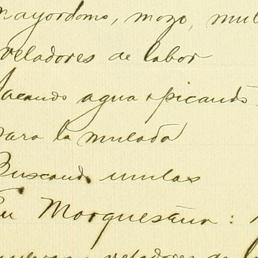 mayordomo, mozo, mul
veladores de labor
sacando agua y picando
para la mulada
Buscando mulas
En Morquesana:
veladores de l